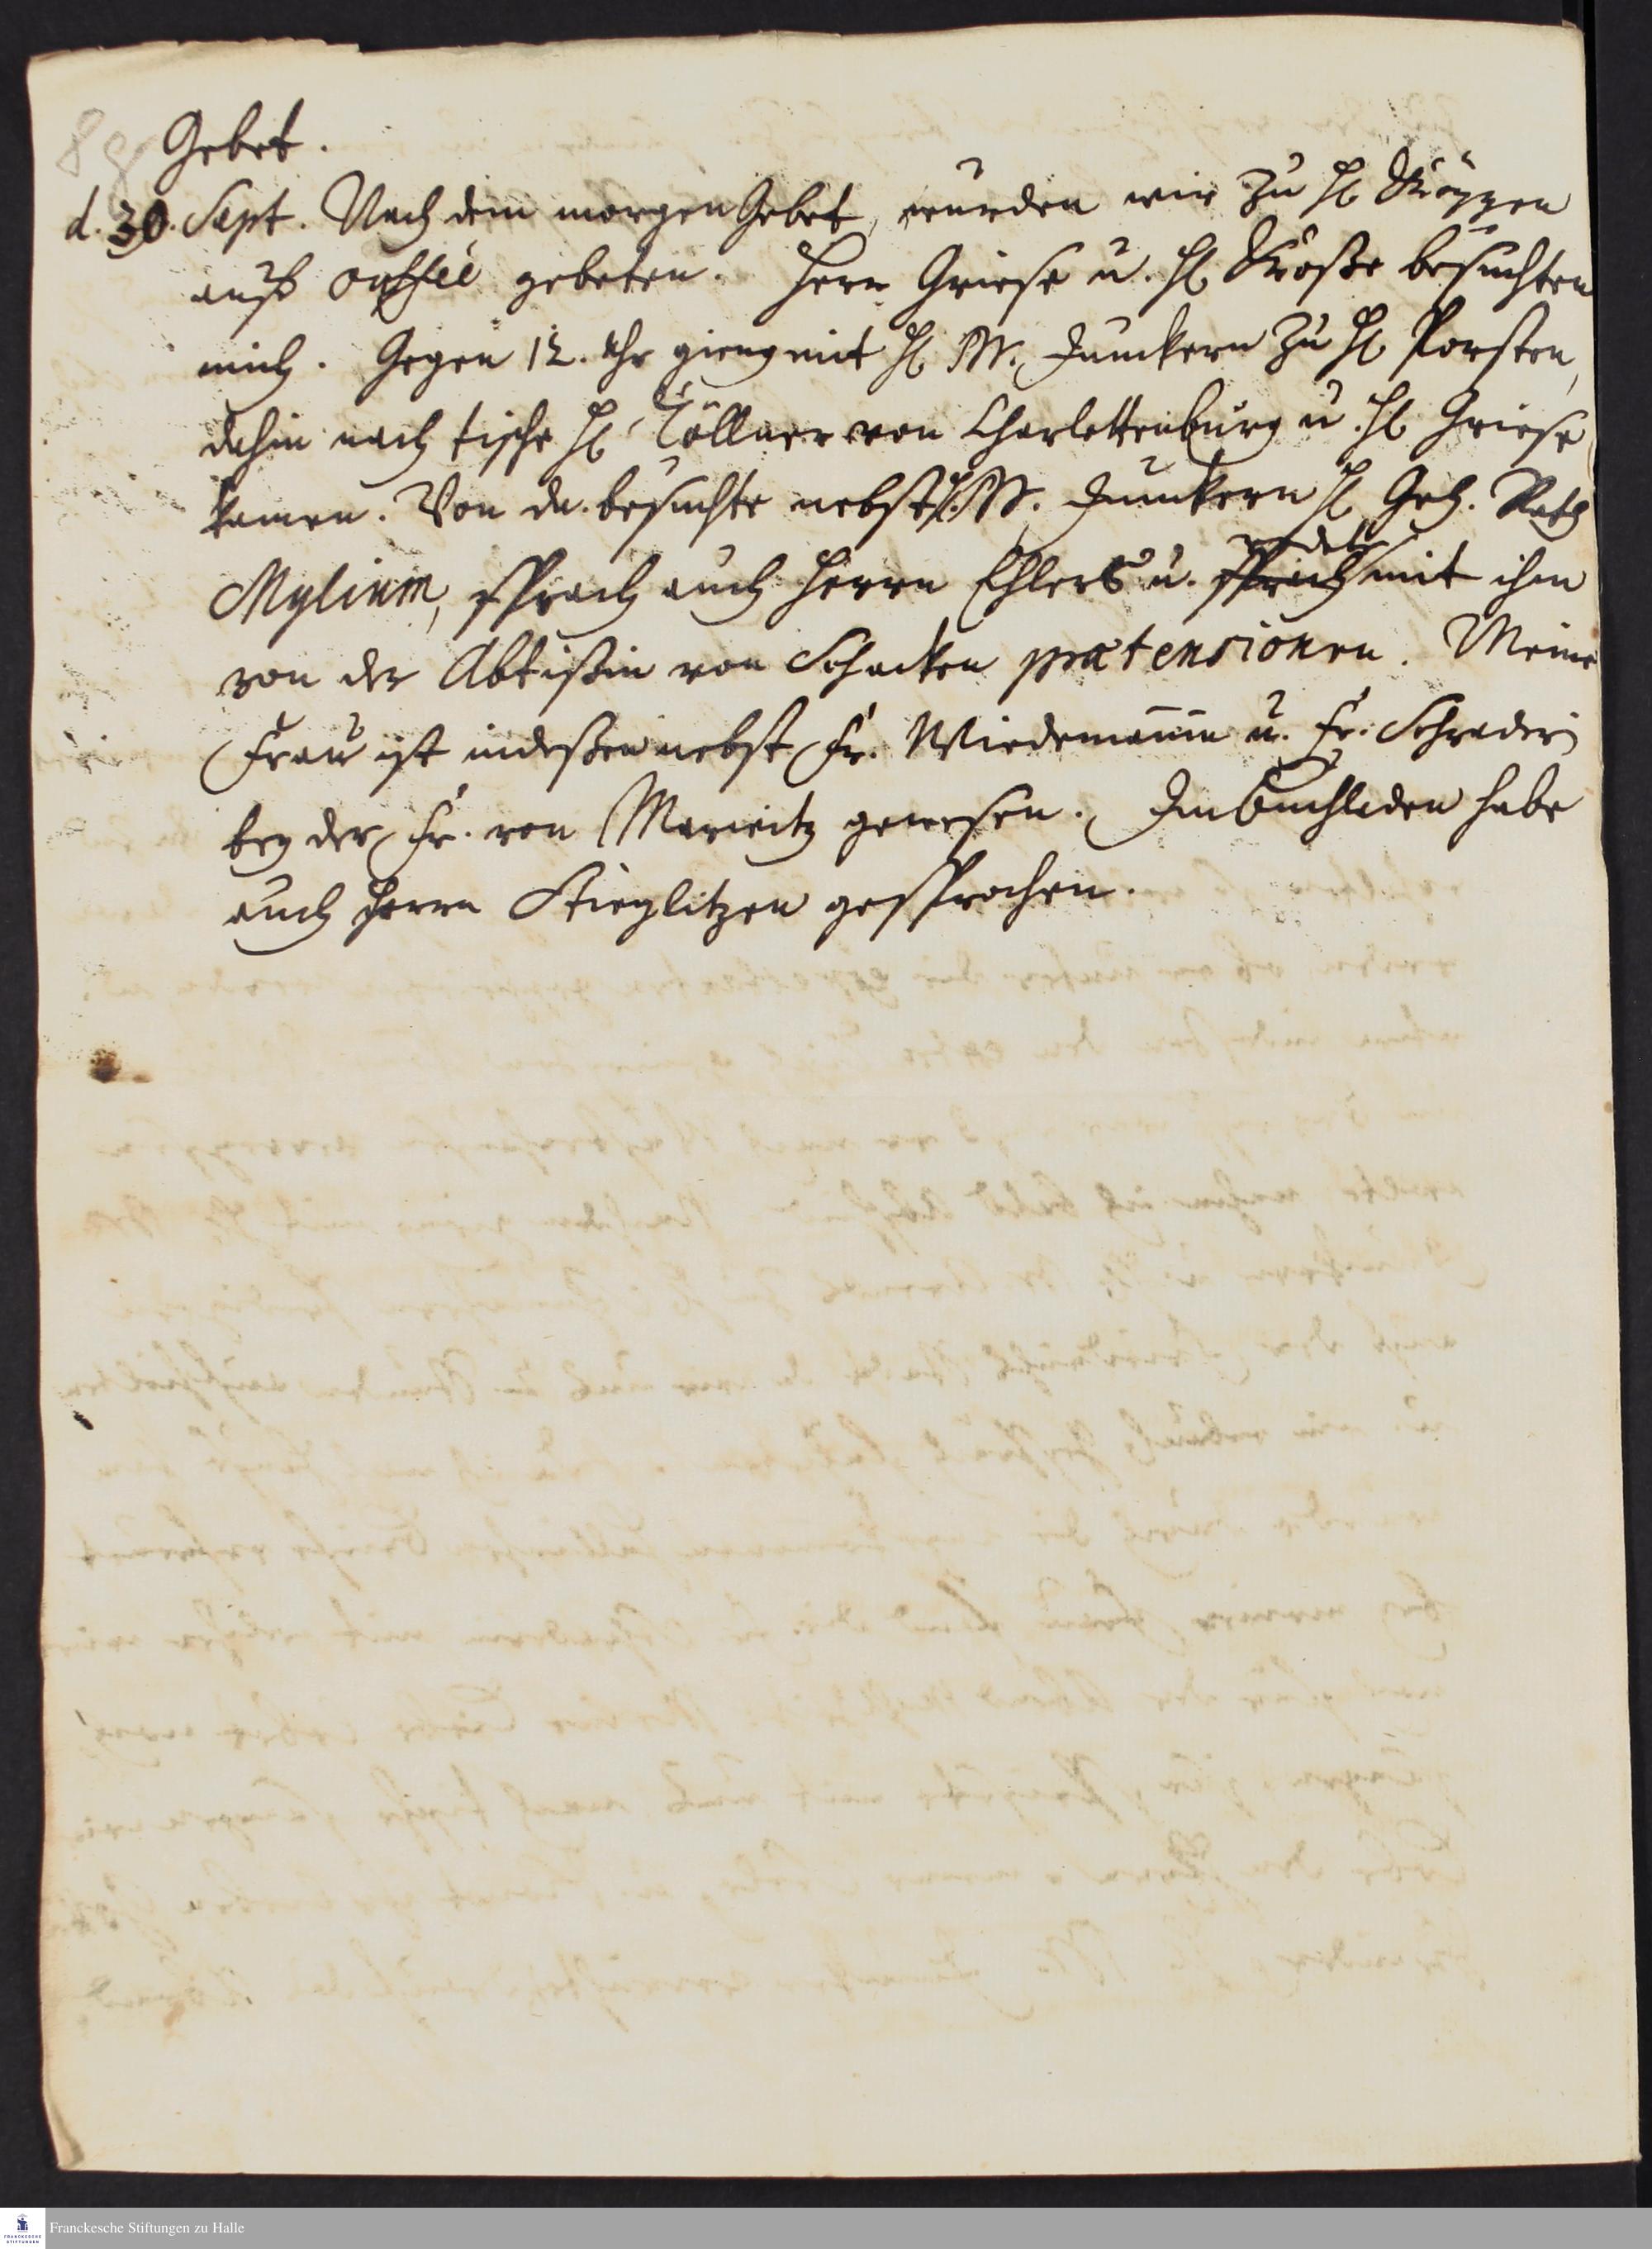 88
Gebet.
d. 30. Sept. Nach dem morgen Gebet, wurden wir zu H. Köppen
auff caffée gebeten. Herr Griese u. H. besuchten
mich. Gegen 12. Uhr gieng mit H. M. Junckern zu H. Porsten,
dahin nach tische H. Töllner von Charlottenburg u. H. Griese
kamen. Von da besuchte nebst H. M. Junckern H. Geh. Rath
Mylium, sprach auch Herrn Ehlers u. redete
sprach mit ihm
von der Abtißin von Schacken prætensionen. Meine
Frau ist indeßen nebst Fr. Wiedemannin u. Fr. Schraderin
bey der Fr. von Marwitz gewesen. Im Buchladen habe
auch Herrn Stieglitzen gesprochen.
Franckesche Stiftungen zu Halle
FRANCKESCHE STIFTUNGEN